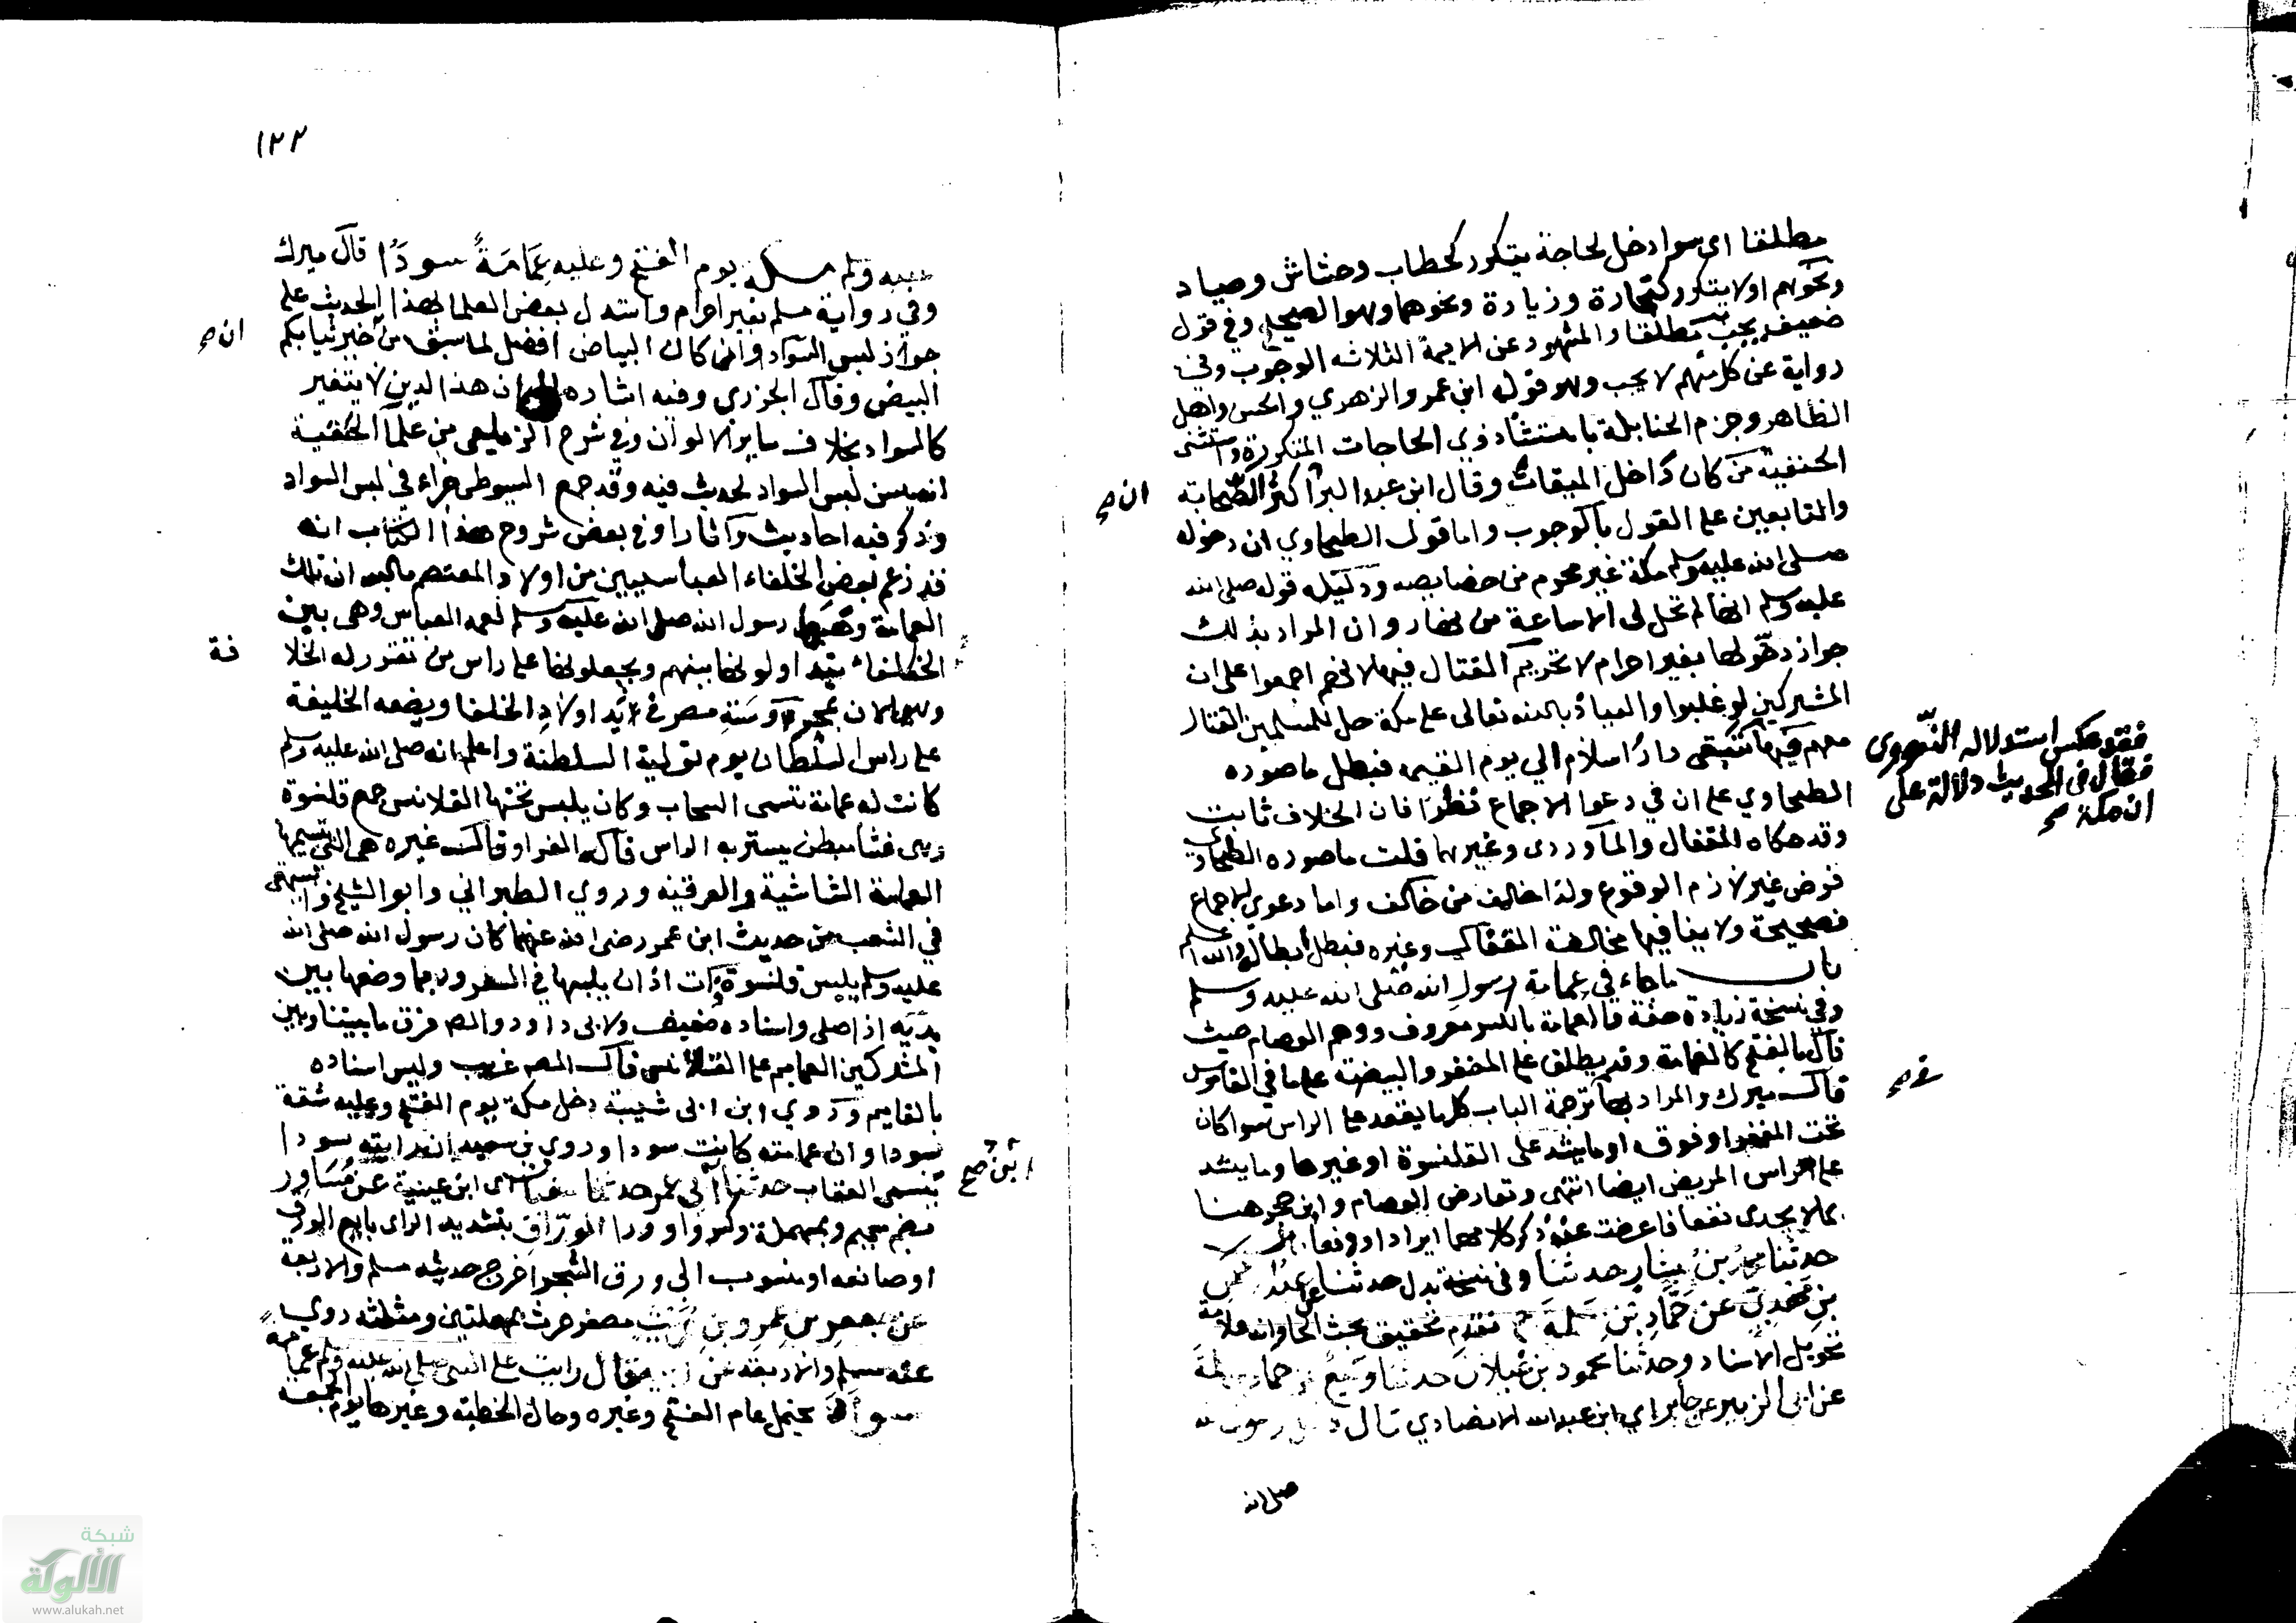 مطلقا اى سوا دخل لحاجة يتكرر كحطاب وحشاش وصياد
ونحوهم اولا يتكرر كتجارة وزيارة ونحوهما وهو الصحيح وفي قول
ضعيف يجب مطلقا والمشهور عن الايمة الثلاثه الوجوب وفي
رواية عن كل منهم لا يجب وهو قول ابن عمر والزهري والحسن واهل
الظاهر وجزم الحنابلة باستثنا ذوي الحاجات المتكررة واستثنى
الحنفية من كان داخل الميقات وقال ابن عبد البر اكثر الصحابة
والتابعين على القول بالوجوب واما قول الطحاوي ان دخوله
ان صح
صلى الله عليه وسلم مكة غير محرم من خصايصه ودليله قوله صلى الله
عليه وسلم انها لم تحل لى الا ساعة من نهار وان المراد بذلك
جواز دخولها بغير احرام لا تحريم القتال فيها لانهم اجمعوا على ان
المشركين لو غلبوا والعياذ بالله تعالى على مكة حل للمسلمين القتال
معهم فيها تبقى دار اسلام الي يوم القيمه فبطل ما صوره
فقد عكس استدلاله النووى
فقال فى الحديث دلالة على
ان مكة صح
الطحاوي على ان في دعوا الاجماع نظرا فان الخلاف ثابت
وقد حكاه القفال والماوردى وغيرهما قلت ما صوره الطحاوى
فرض غير لازم الوقوع ولذا خالف من خالف واما دعوي الاجماع
فصحيحة ولا ينافيها مخالفة القفال وغيره فبطل ابطاله والله اعلم
باب ما جاء في عمامة رسول الله صلى الله عليه وسلم
وفي نسخة زيادة صفة فالعمامة بالكسر معروف ووهم العصام حيث
قال بالفتح كالغمامة وقد يطلق على المغفر والبيضة على ما في القاموس
قال ميرك والمراد بها ترجمة الباب كل ما يعقد على الراس سوا كان
تحت المغفر او فوقه او ما يشد على القلنسوة او غيرها وما يشد
على الراس المريض ايضا انتهى وتعارض العصام وابن حجر هنا
بما لا يجدى نفعا فاعرضت عن ذكر كلامهما ايرادا ودفعا
حدثنا محمد بن بشار حدثنا وفى نسخة بدل حدثنا عبد الرحمن
بن مهدي عن حماد بن سلمة ح تقدم تحقيق بحث الحا وانه علامة
تحويل الاسناد وحدثنا محمود بن غيلان حدثنا وكيع عن حماد بن سلمة
عن ابى الزبير عن جابر اي ابن عبد الله الانصاري قال دخل رسول الله
صلى الله
١٢٢
عليه وسلم مكة يوم الفتح وعليه عمامة سودا قال ميرك
وفي رواية مسلم بغير احرام واستدل بعض العلما بهذا الحديث على
جواز لبس السواد وان كان البياض افضل لما سبق من خير ثيابكم
ان صح
البيض وقال الجزري وفيه اشاره الى ان هذا الدين لا يتغير
كالسواد بخلاف ساير الالوان وفي شرح الزيلعى من علما الحنفية
انه يسن لبس السواد لحديث فيه وقد جمع السيوطى جزاء في لبس السواد
وذكر فيه احاديث واثارا وفي بعض شروح هذا الكتاب انه
قد زعم بعض الخلفاء العباسيين من اولاد المعتصم بالله ان تلك
العمامة وهبها رسول الله صلى الله عليه وسلم لعمه العباس وهى بين
الخلفاء يتداولونها بينهم ويجعلونها على راس من تقرر له الخلا
فة
وهى الان بمحروسة مصر في ايد اولاد الخلفا ويضعه الخليفة
على راس السلطان يوم تولية السلطنة واعلم انه صلى الله عليه وسلم
كانت له عمامة تسمى السحاب وكان يلبس تحتها القلانس جمع قلنسوة
وهى غشا مبطن يستر به الراس قاله الفرا وقال غيره هى التى تسميها
العامة الشاشية والعرقيه وروي الطبراني وابو الشيخ والبيهقى
في الشعب من حديث ابن عمر رضى الله عنهما كان رسول الله صلى الله
عليه وسلم يلبس قلنسوة ذات اذان يلبسها في السفر وربما وضعها بين
يديه اذا صلى واسناده ضعيف ولابى داود والمصـ فرق ما بيننا وبين
المشركين العمايم على القلانس قال المصـ غريب وليس اسناده
بالقايم وروي ابن ابى شيبة دخل مكة يوم الفتح وعليه شقة
سودا وان عمامته كانت سودا وروي بن سعيد ان رايته سودا
تسمى العقاب حدثنا ابى عمر حدثنا سفيان اى ابن عيينة عن مساور
ابن صح
بضم ميم وبمهملة وكسر واو ورا الوراق بتشديد الراى بايع الورق
او صانعه او منسوب الى ورق الشجر اخرج حديثه مسلم والاربعه
عن جعفر بن عمرو بن حريث مصغر حرث بمهملتين ومثلثة روي
عنه مسلم والاربعة عن ابيه قال رايت على النبى صلى الله عليه وسلم عمامة
سودا يحتمل عام الفتح وغيره وحال الخطبة وغيرها يوم الجمعه
شبكة
الألوكة
www.alukah.net